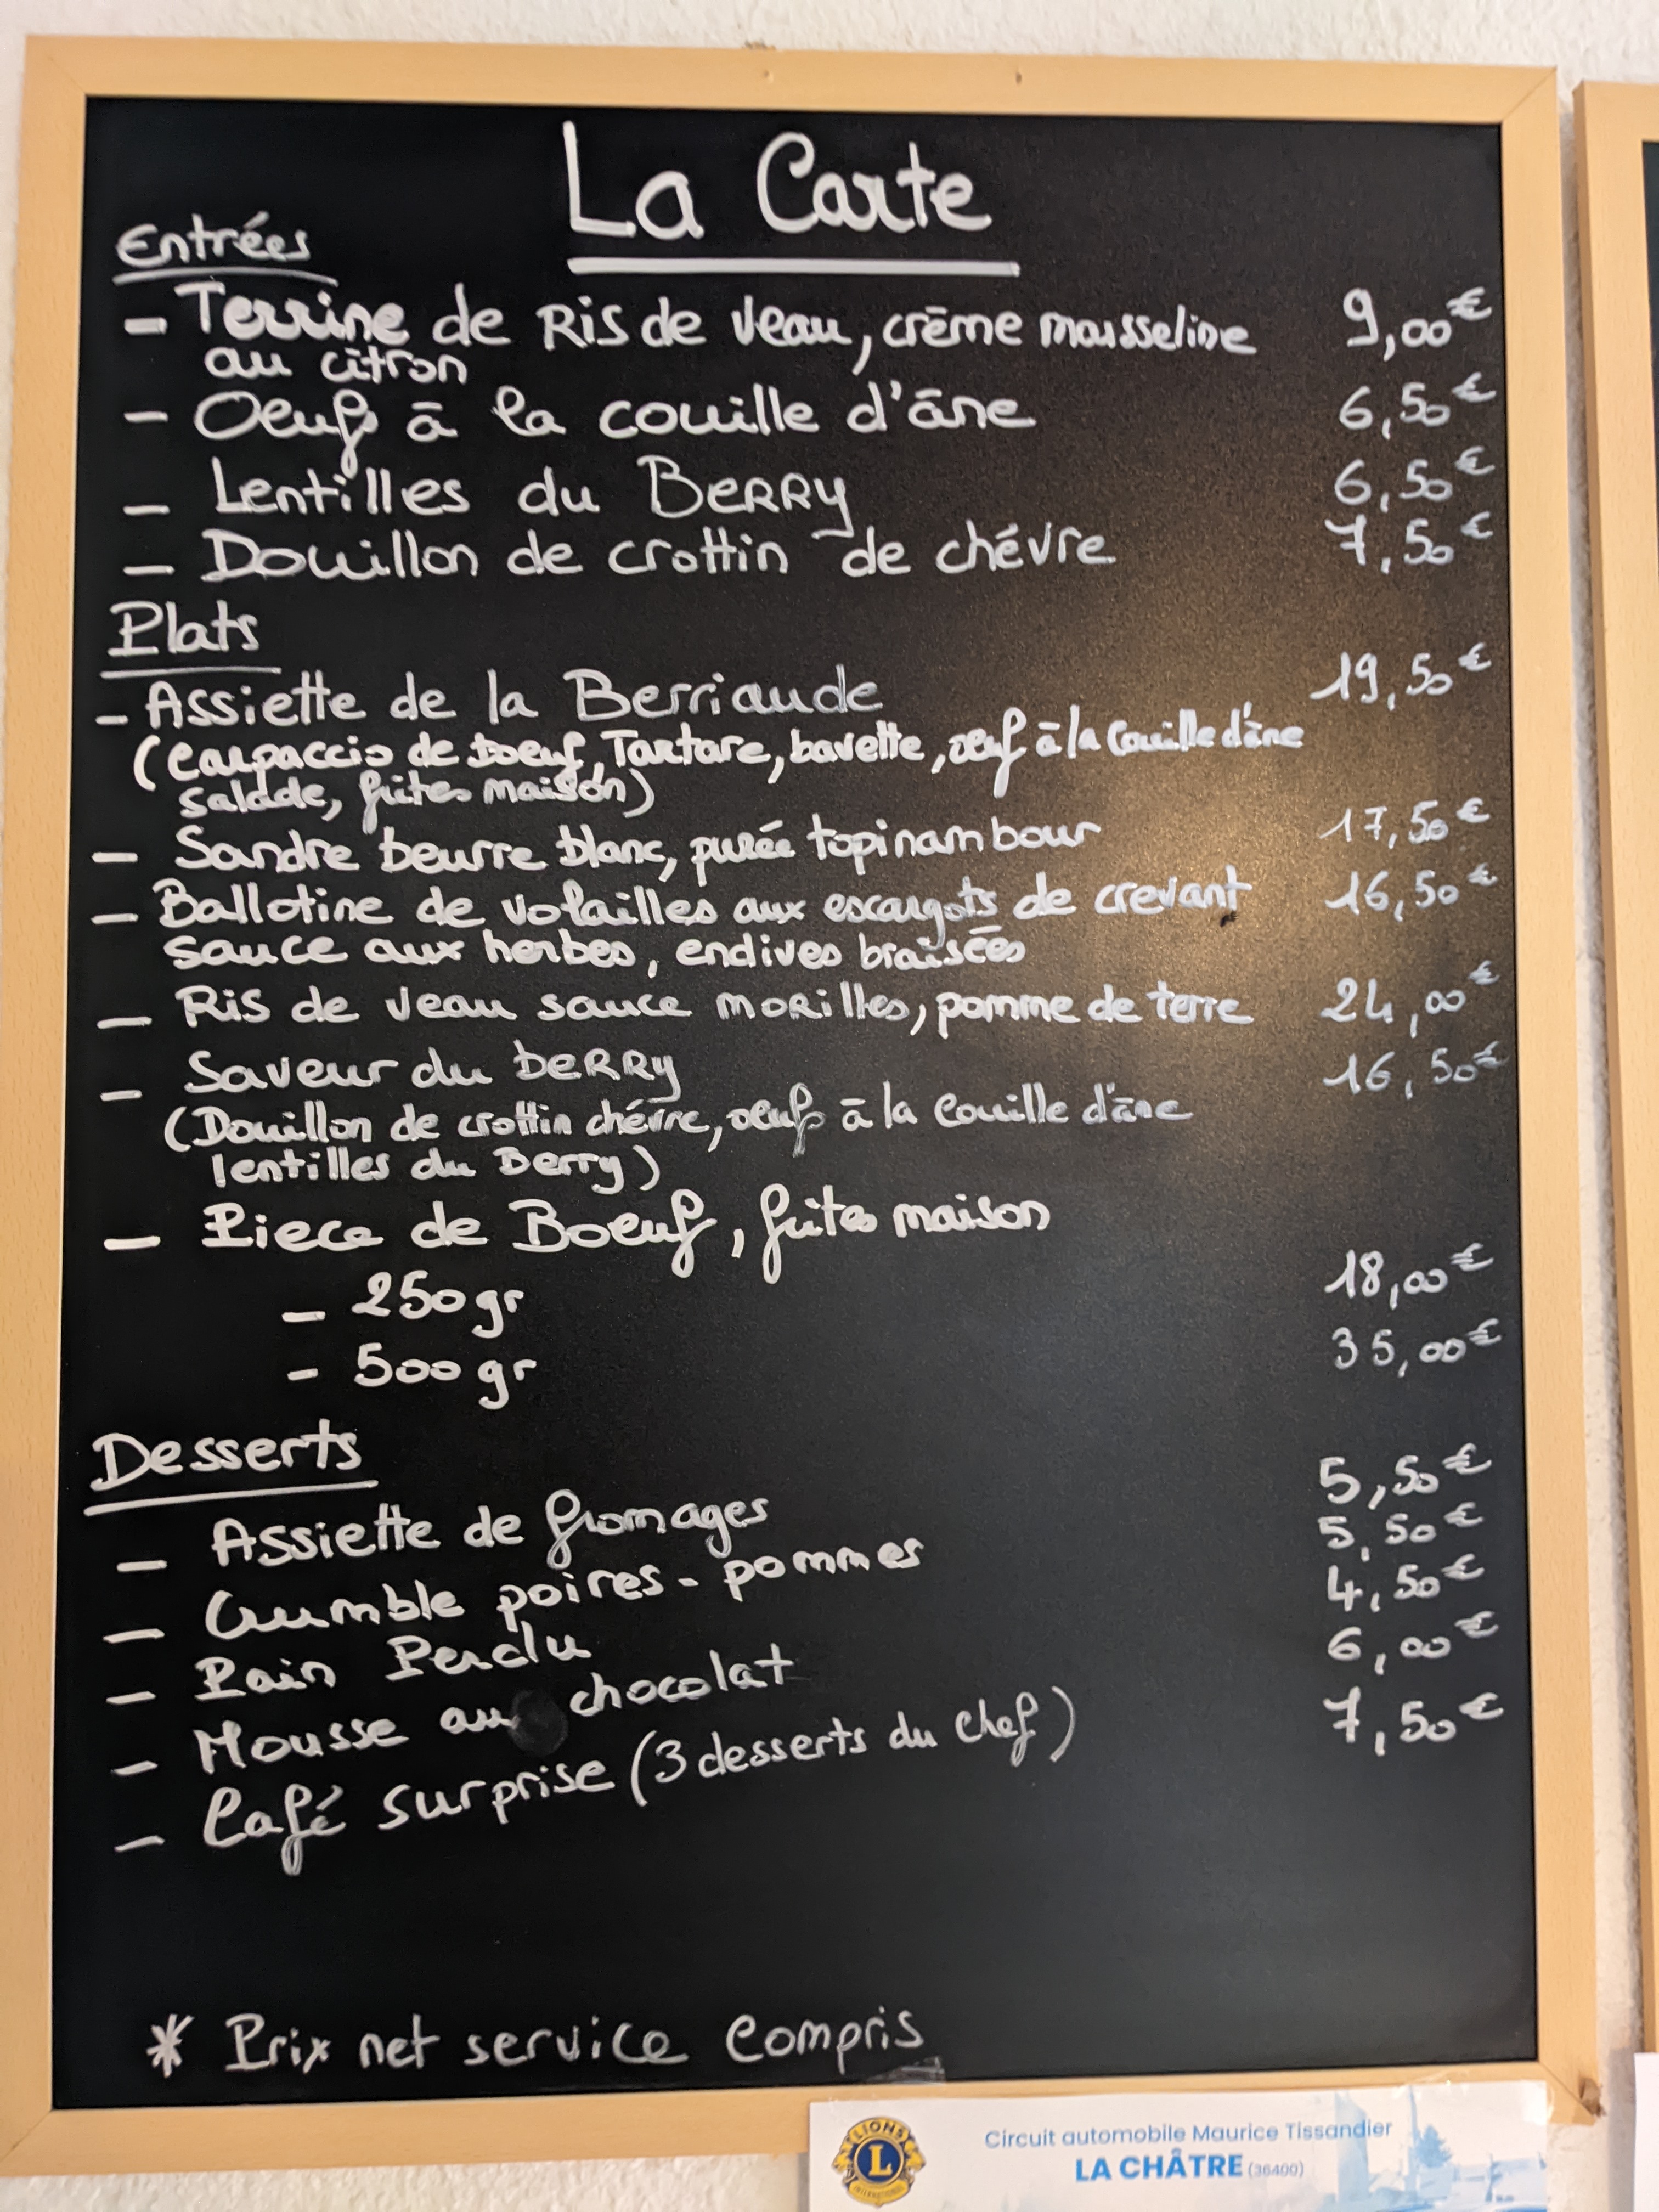 La Carte
Entrées
- Terrine de Ris de veau, crème mousseline 9,00€
au citron
- Oeuf à la couille d'âne 6,50€
- Lentilles du Berry 6,50€
- Douillon de crottin de chévre 7,50€
Plats
- Assiette de la Berriaude 19,50€
(Carpaccio de boeuf, Tartare, bavette, oeuf à la Couille d'âne
salade, frites maison)
- Sandre beurre blanc, purée topinambour 17,50€
- Ballotine de volailles aux escargots de crevant 16,50€
sauce aux herbes, endives braisées
- Ris de veau sauce morilles, pomme de terre 24,00€
- Saveur du berry 16,50€
(Douillon de crottin chévre, oeuf à la Couille d'âne
lentilles du Berry)
- Piece de Boeuf, frites maison
- 250gr 18,00€
- 500gr 35,00€
Desserts
- Assiette de fromages 5,50€
- Crumble poires-pommes 5,50€
- Pain Perdu 4,50€
- Mousse au chocolat 6,00€
- Café surprise (3 desserts du Chef) 7,50€
* Prix net service Compris
LIONS
L
INTERNATIONAL
Circuit automobile Maurice Tissandier
LA CHÂTRE (36400)